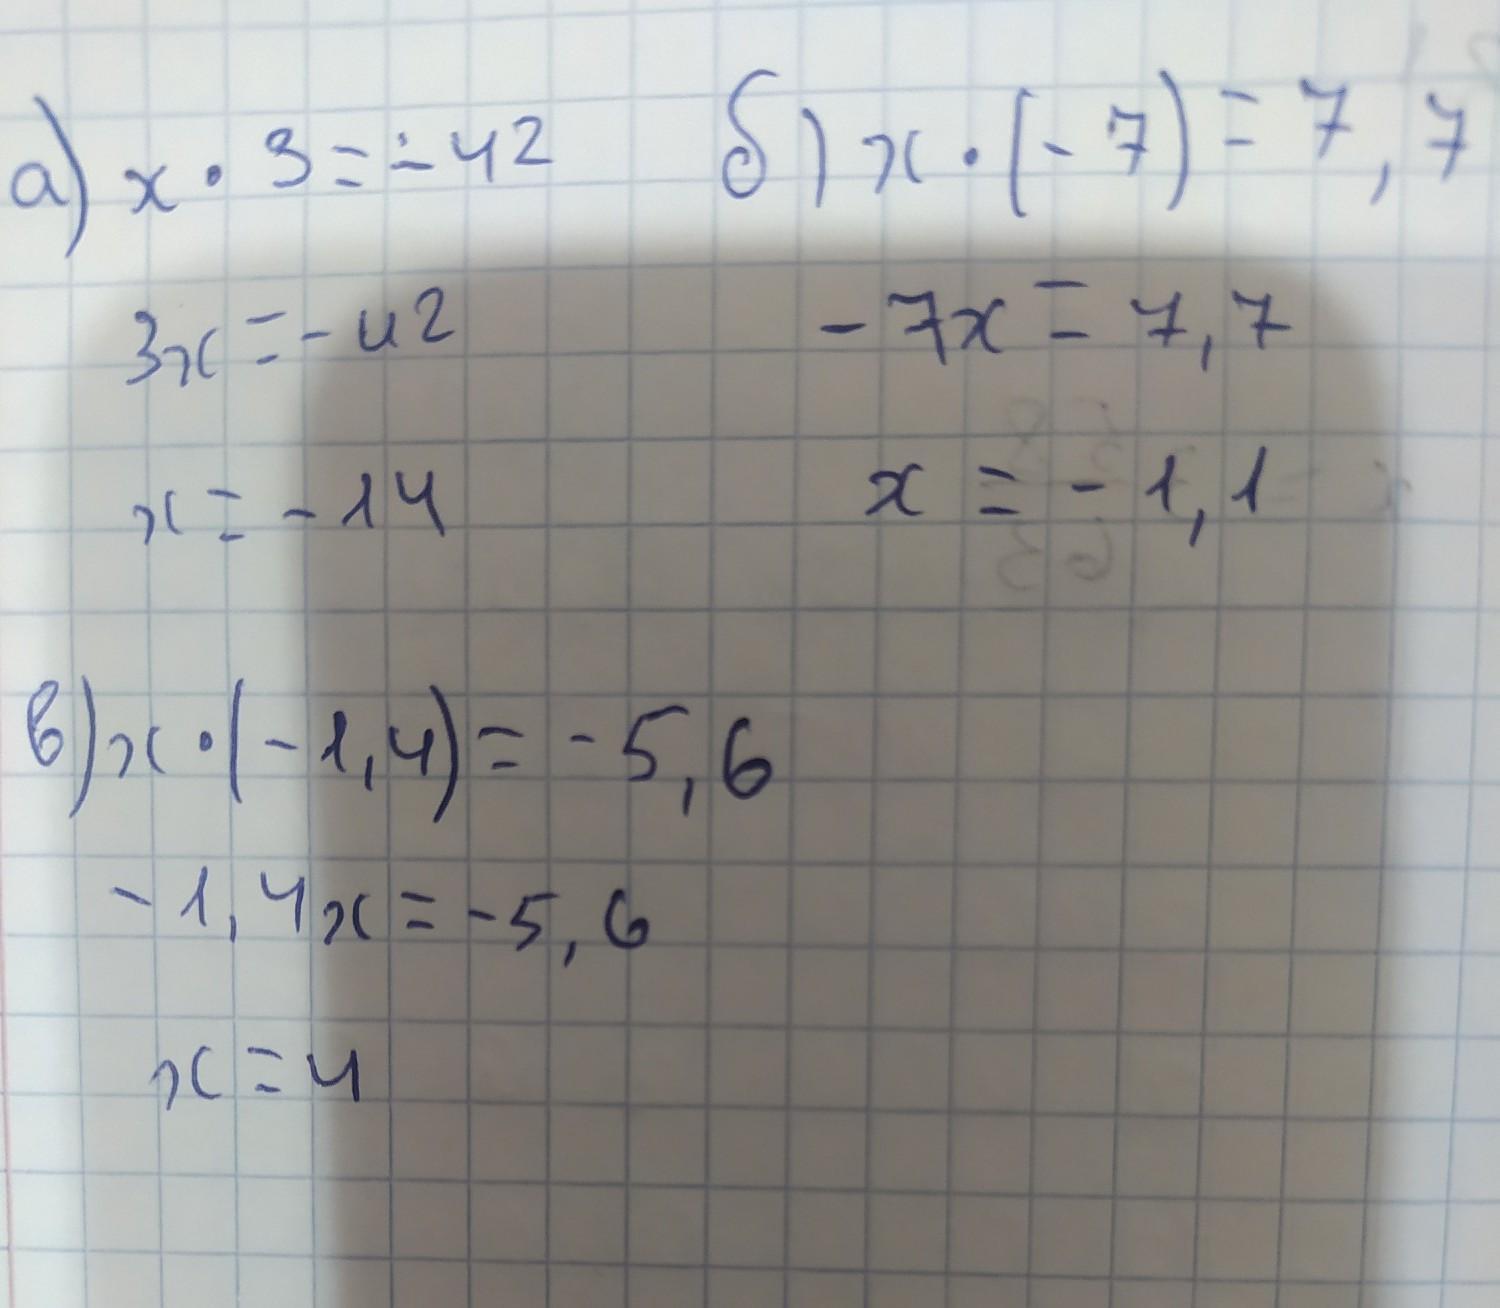 а) x · 3 = -42
3x = -42
x = -14
б) x · (-7) = 7,7
-7x = 7,7
x = -1,1
в) x · (-1,4) = -5,6
-1,4x = -5,6
x = 4